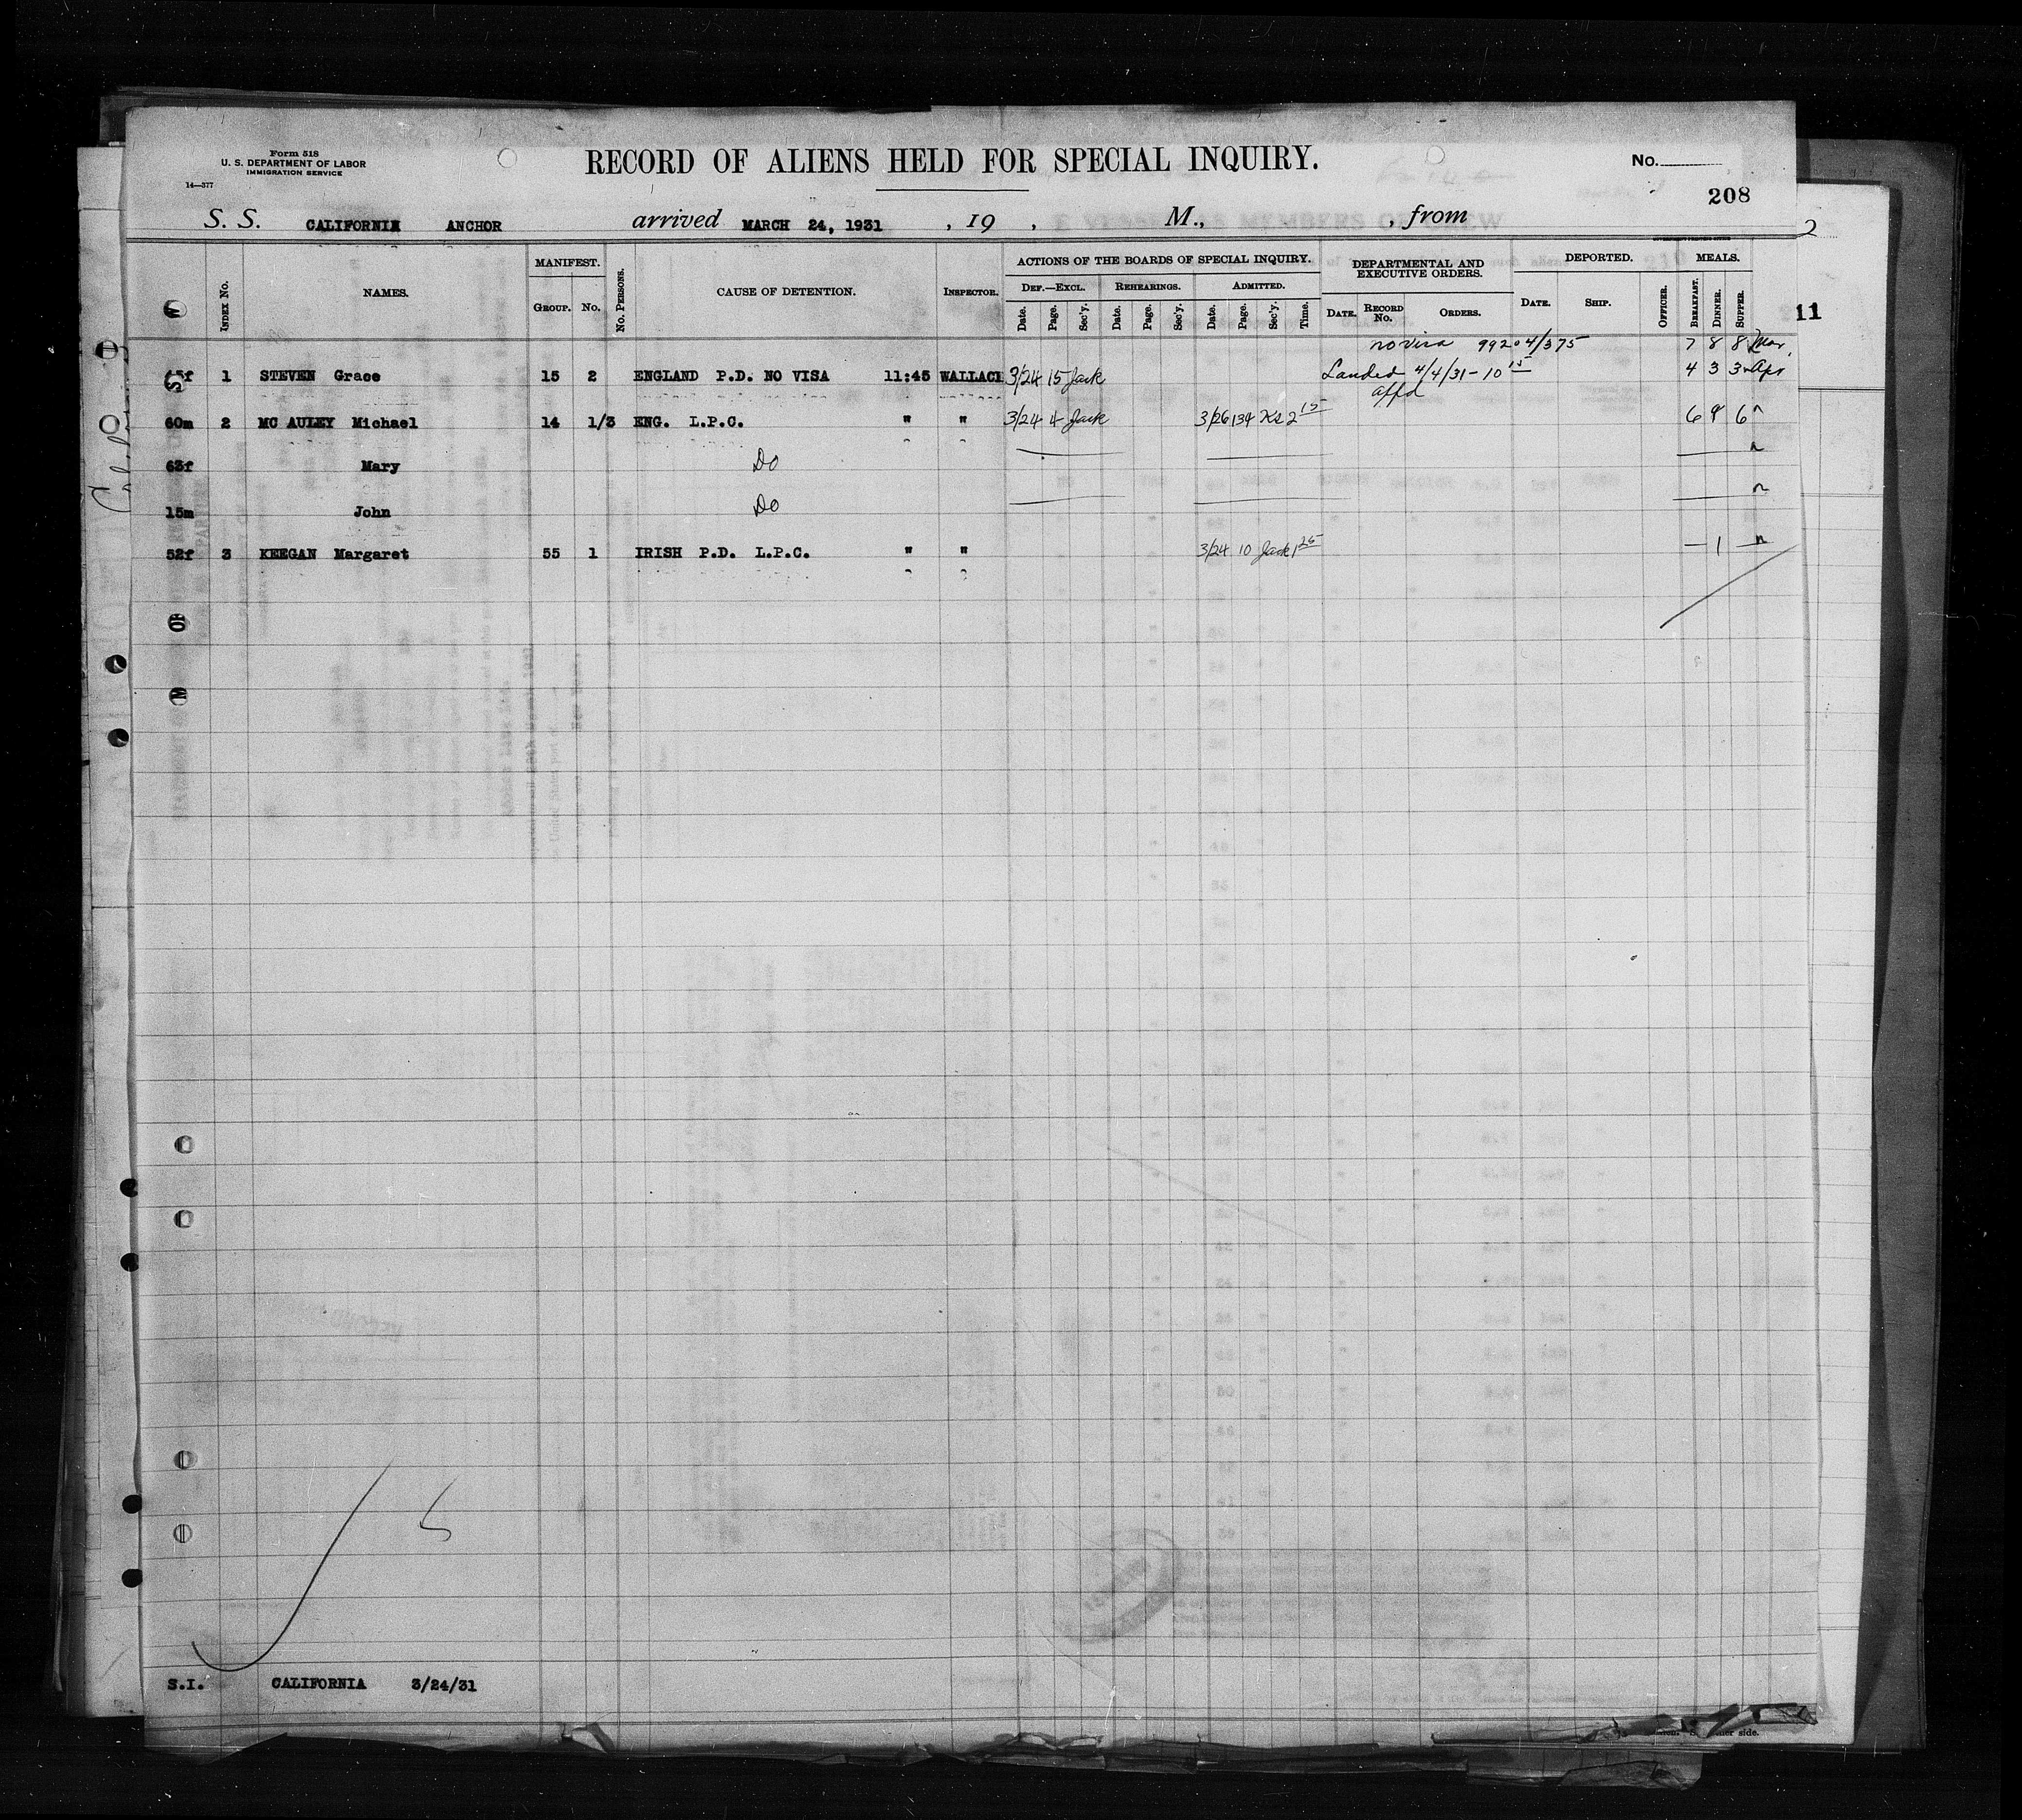 Form 518
U. S. DEPARTMENT OF LABOR
IMMIGRATION SERVICE
14—377
RECORD OF ALIENS HELD FOR SPECIAL INQUIRY.
No.
208
S. S. CALIFORNIA ANCHOR arrived MARCH 24, 1931 , 19 , M., , from
INDEX No. NAMES. MANIFEST. GROUP. No. No. PERSONS. CAUSE OF DETENTION. INSPECTOR. ACTIONS OF THE BOARDS OF SPECIAL INQUIRY. DEF.—EXCL. Date. Page. Sec'y. REHEARINGS. Date. Page. Sec'y. ADMITTED. Date. Page. Sec'y. Time. DEPARTMENTAL AND EXECUTIVE ORDERS. DATE. RECORD No. ORDERS. DEPORTED. DATE. SHIP. OFFICER. MEALS. BREAKFAST. DINNER. SUPPER.
11
no visa 99204/375 7 8 8 Mar.
1 STEVEN Grace 15 2 ENGLAND P.D. NO VISA 11:45 WALLACE 3/24 15 Jack Landed 4/4/31-10 15 4 3 3 Apr
affd
60m 2 MC AULEY Michael 14 1/3 ENG. L.P.C. " " 3/24 4 Jack 3/26 134 2 15 6 9 6
63f Mary Do
15m John Do
52f 3 KEEGAN Margaret 55 1 IRISH P.D. L.P.C. " " 3/24 10 Jack 1 25 — 1 —
5
S.I. CALIFORNIA 3/24/31
side.